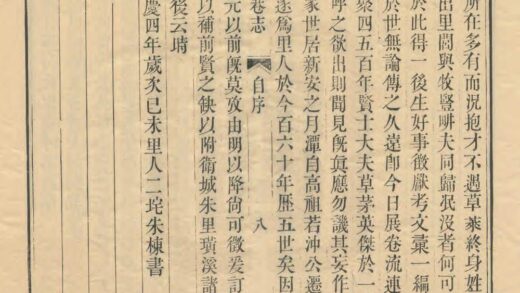 所在多有而況抱才不遇草萊終身姓
出里閭與牧豎畊夫同歸泯沒者何可
於此得一後生好事徵獻考文彙一編
於世無論傳之久遠卽今日展卷流連
聚四五百年賢士大夫草茅英傑於一
呼之欲出則聞見旣眞應勿譏其妄作
家世居新安之月潭自高祖若沖公遷
遂爲里人於今百六十年歷五世矣因
卷志 自序 八
元以前旣莫攷由明以降尙可徵爰訂
以補前賢之缺以附衛城朱里璜溪諸
後云時
慶四年歲次己未里人二垞朱棟書